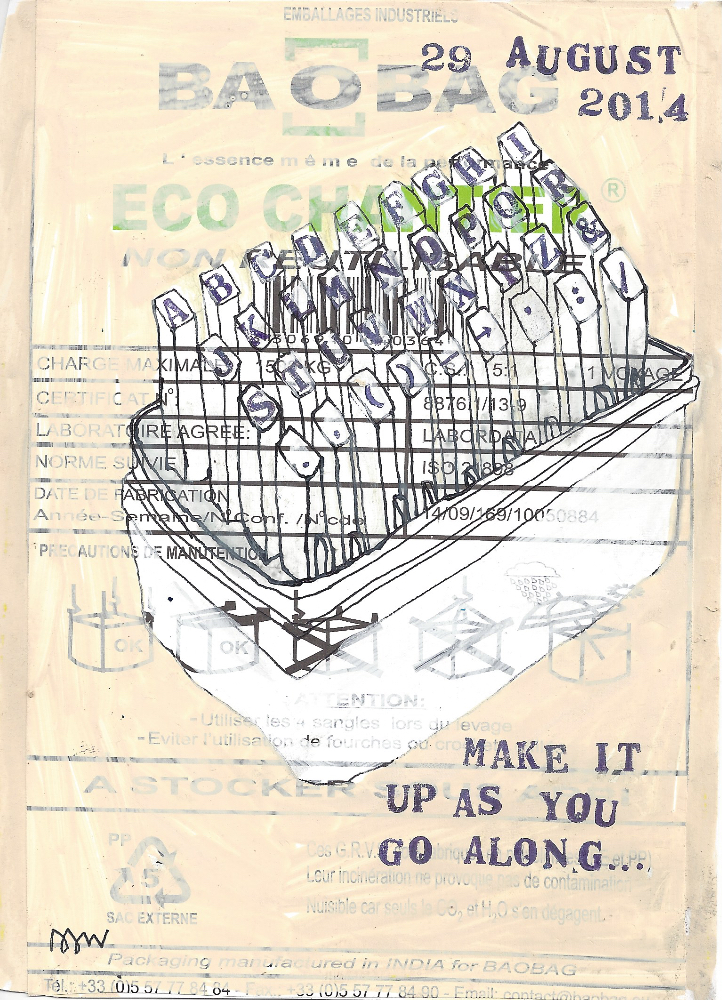 EMBALLAGES INDUSTRIELS
29 AUGUST
BAOBAG
2014
L'essence même de la performance
ECO CHANTIER ®
NON REUTILISABLE
A B C D E F G H I
J K L M N O P Q R
S T U V W X Y Z &
CHARGE MAXIMALE 1 VOYAGE
CERTIFICAT N°: 8876/1/13-9
LABORATOIRE AGREE: LABORDATA
NORME SUIVIE ISO 21898
DATE DE FABRICATION
Année-Semaine/N°Conf. /N°cde 14/09/169/10050884
PRECAUTIONS DE MANUTENTION
OK OK
ATTENTION:
-Utiliser les 4 sangles lors du levage
-Eviter l'utilisation de fourches ou
MAKE IT
A STOCKER
UP AS YOU
GO ALONG...
PP
5
SAC EXTERNE
Ces G.R.V.
Leur incinération ne provoque pas de contamination
Nuisible car seuls le CO₂ et H₂O s'en dégagent.
Packaging manufactured in INDIA for BAOBAG
Tél.: +33 (0)5 57 77 84 84 - Fax: +33 (0)5 57 77 84 90 - Email: